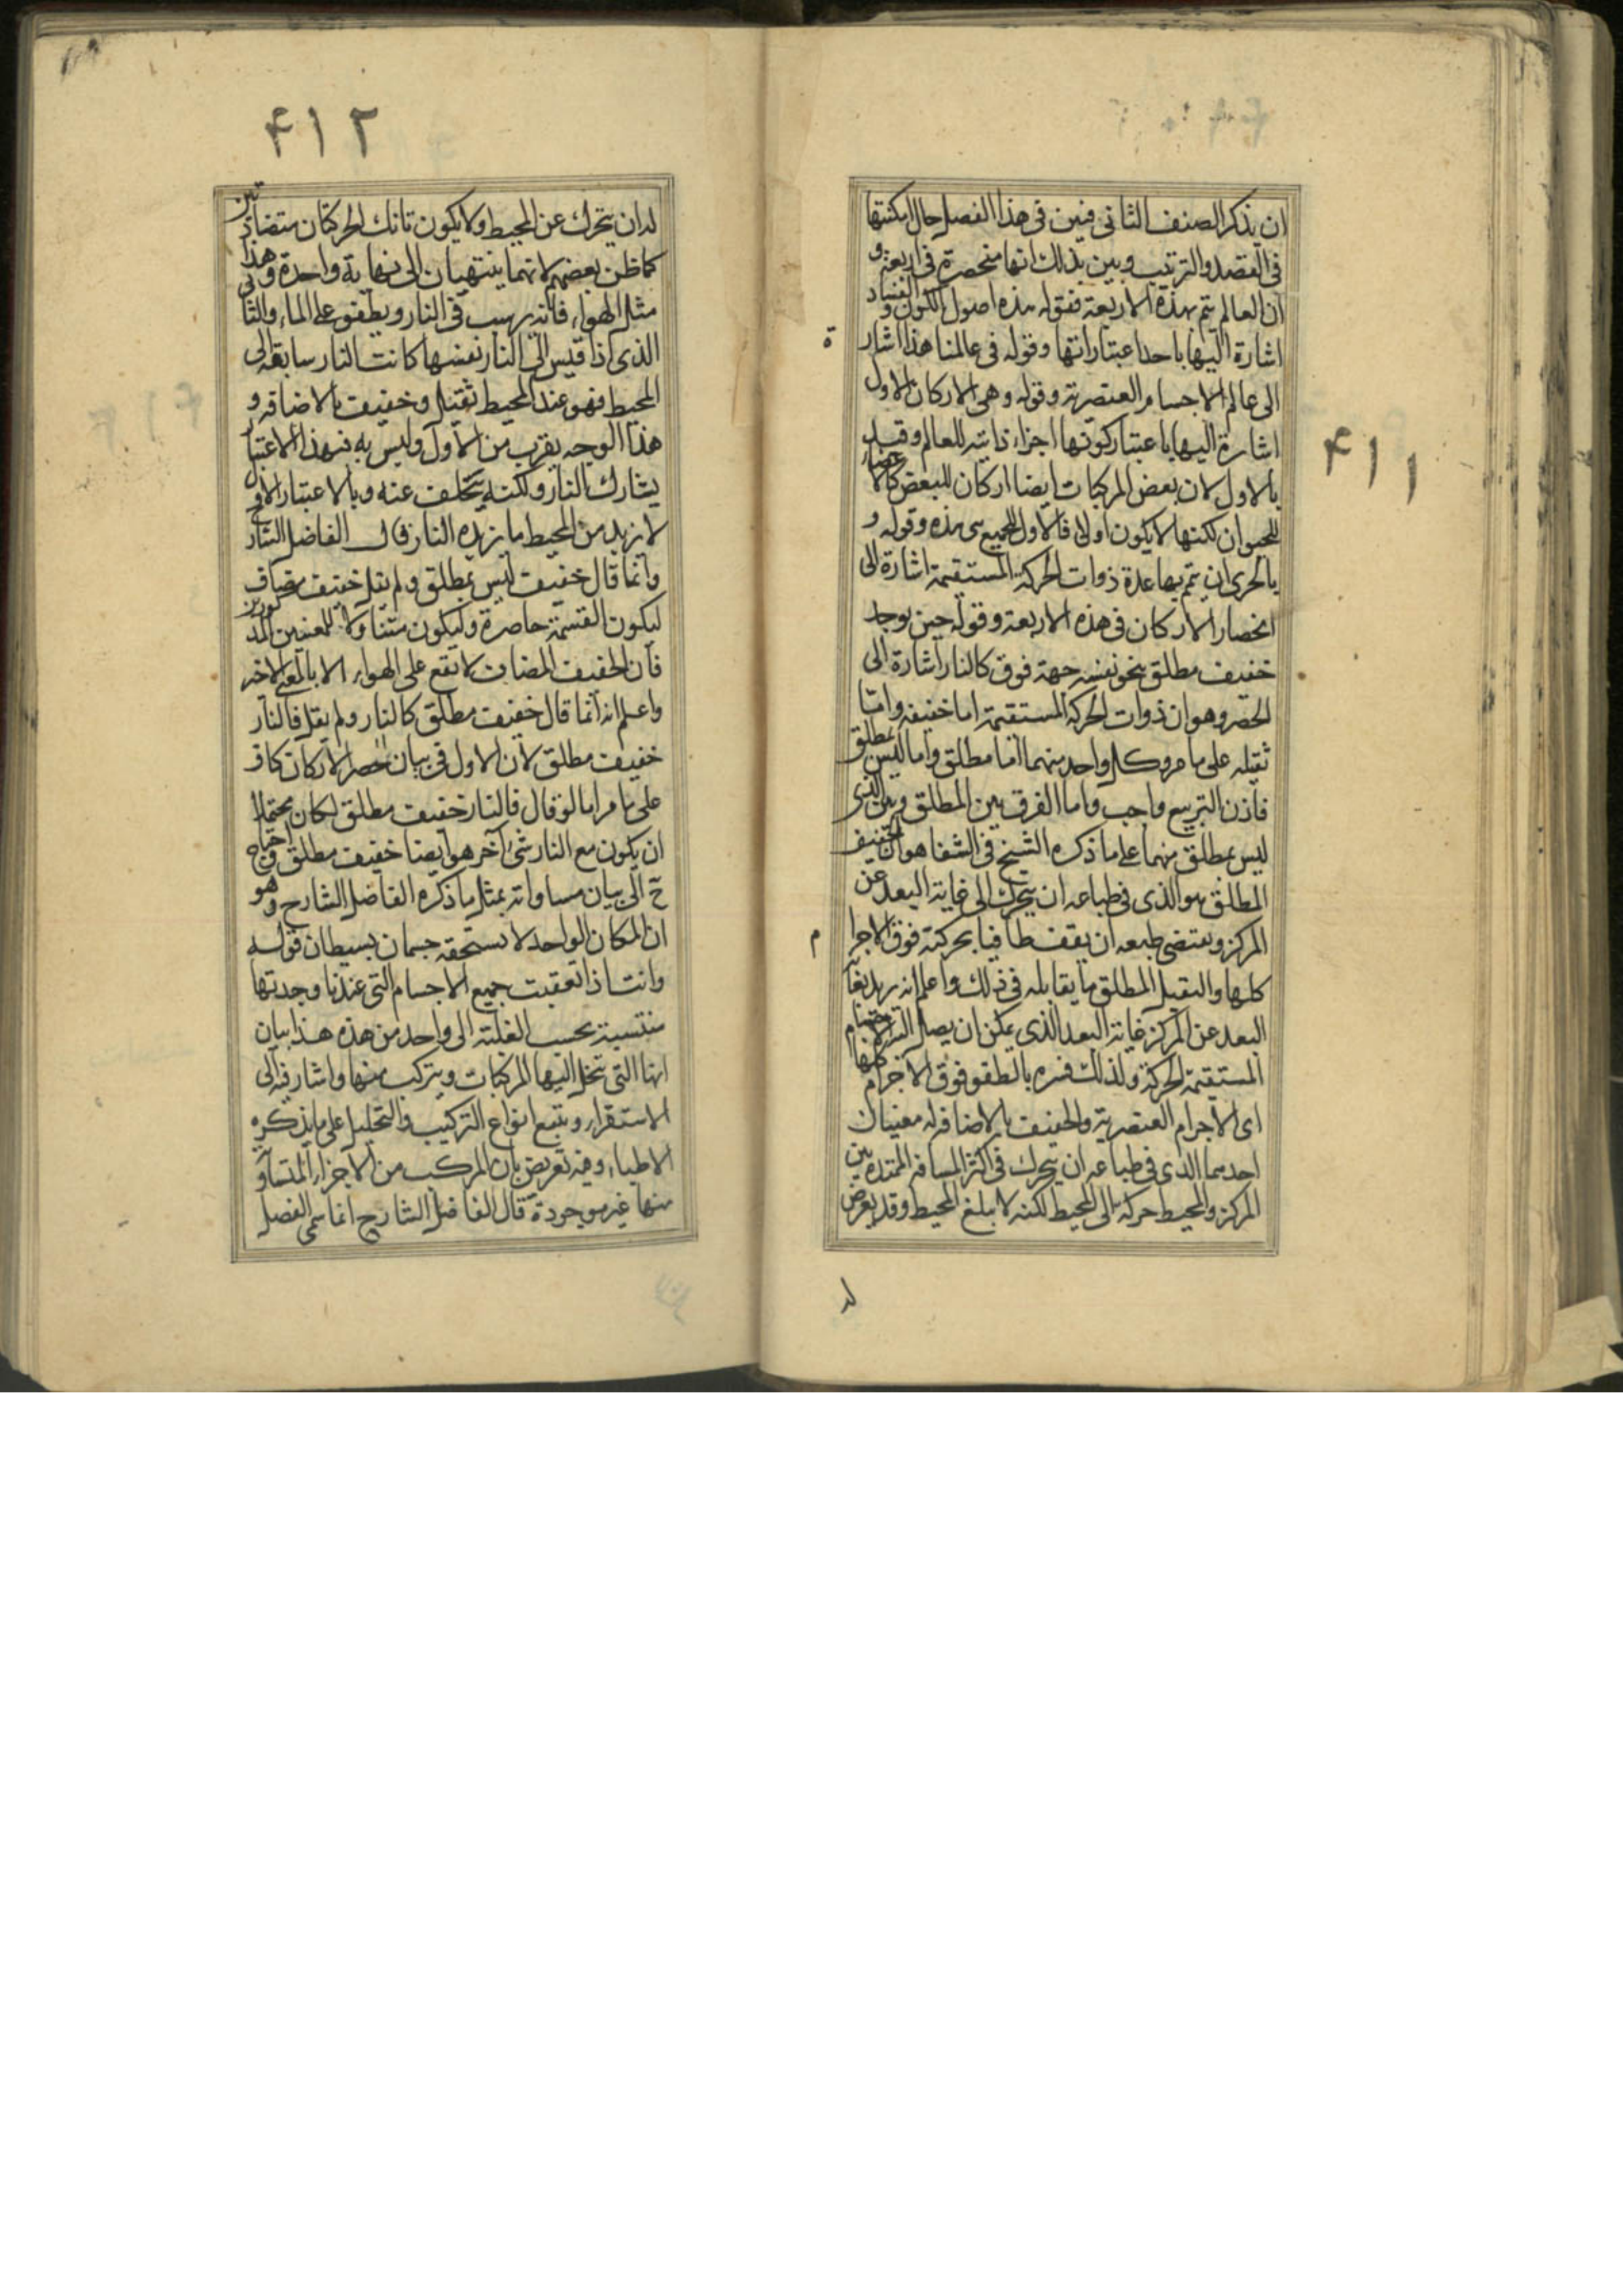 ٤١١
ان يذكر الصنف الثانى فبين فى هذا الفصل حال امكنتها
فى النضد والترتيب وبين بذلك انها منحصرة فى اربعة و
ان العالم يتم بهذه الاربعة فقوله هذه اصول الكون والفساد
اشارة اليها باحد اعتباراتها وقوله فى عالمنا هذا اشارة
الى عالم الاجسام العنصرية وقوله وهى الاركان الاول
اشارة اليها باعتبار كونها اجزاء ذاتية للعالم وقيد
بالاول لان بعض المركبات ايضا اركان للبعض كالاعضاء
للحيوان لكنها لا يكون اولى فالاول للجميع هى هذه وقوله و
بالحرى ان يتم بها عدة ذوات الحركة المستقيمة اشارة الى
انحصار الاركان فى هذه الاربعة وقوله حين يوجد
خفيف مطلق ينحو نفسه جهة فوق كالنار اشارة الى
الحصر وهو ان ذوات الحركة المستقيمة اما خفيفة واما
ثقيلة على ما مر وكل واحد منهما اما مطلق واما ليس بمطلق
فاذن التربيع واجب واما الفرق بين المطلق وبين الذى
ليس بمطلق منهما على ما ذكره الشيخ فى الشفا هو ان الخفيف
المطلق هو الذى فى طباعه ان يتحرك الى غاية البعد عن
المركز ويقتضى طبعه ان يقف طافيا بحركته فوق الاجرام
كلها والثقيل المطلق ما يقابله فى ذلك واعلم انه يريد بغاية
البعد عن المركز غاية البعد الذى يمكن ان يصل اليه الاجسام
المستقيمة الحركة ولذلك فسره بالطفو فوق الاجرام كلها
اى الاجرام العنصرية والخفيف بالاضافة له معنيان
احدهما الذى فى طباعه ان يتحرك فى اكثر المسافة الممتدة بين
المركز والمحيط حركة الى المحيط لكنه لا يبلغ المحيط وقد يعرض
له
٤١٢
له ان يتحرك عن المحيط ولا يكون تانك الحركتان متضادتين
كما ظن بعضهم لانهما ينتهيان الى نهاية واحدة وهذا
مثل الهواء فانه يرسب فى النار ويطفو على الماء والثانى
الذى اذا قيس الى النار نفسها كانت النار سابقة الى
المحيط فهو عند المحيط ثقيل وخفيف بالاضافة و
هذا الوجه يقرب من الاول وليس به فبهذا الاعتبار
يشارك النار ولكنه يتخلف عنه وبالاعتبار الاول
لا يريد من المحيط ما يريده النار قال الفاضل الشارح
وانما قال خفيف ليس بمطلق ولم يقل خفيف مضاف
ليكون القسمة حاصرة وليكون متناولا للمعنيين المذكورين
فان الخفيف المضاف لا يقع على الهواء الا بالمعنى الاخر
واعلم انه انما قال خفيف مطلق كالنار ولم يقل فالنار
خفيف مطلق لان الاول فى بيان حصر الاركان كاف
على ما مر اما لو قال فالنار خفيف مطلق لكان محتملا
ان يكون مع النار شئ آخر هو ايضا خفيف مطلق واحتاج
ح الى بيان مساواته بمثل ما ذكره الفاضل الشارح وهو
ان المكان الواحد لا يستحقه جسمان بسيطان قوله
وانت اذا تعقبت جميع الاجسام التى عندنا وجدتها
منتسبة بحسب الغلبة الى واحد من هذه هذا بيان
انها التى تنحل اليها المركبات ويتركب منها واشار فيه الى
الاستقراء وتتبع انواع التركيب والتحليل على ما يذكره
الاطباء وفيه تعريض بان المركب من الاجزاء المتساوية
منها غير موجودة قال الفاضل الشارح انما سمى الفصل